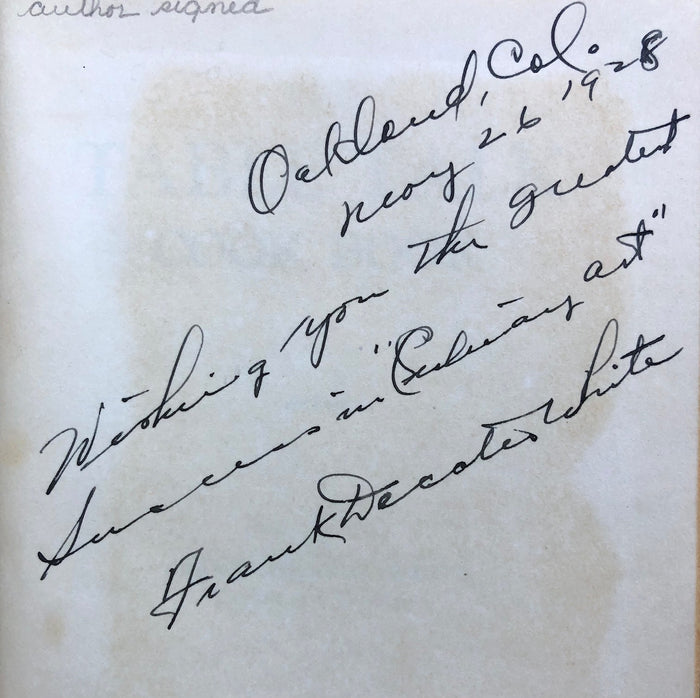 author signed
Oakland, Cal.
May 26 1928
Wishing you the greatest
Success in "Culinary art"
Frank Decatur White